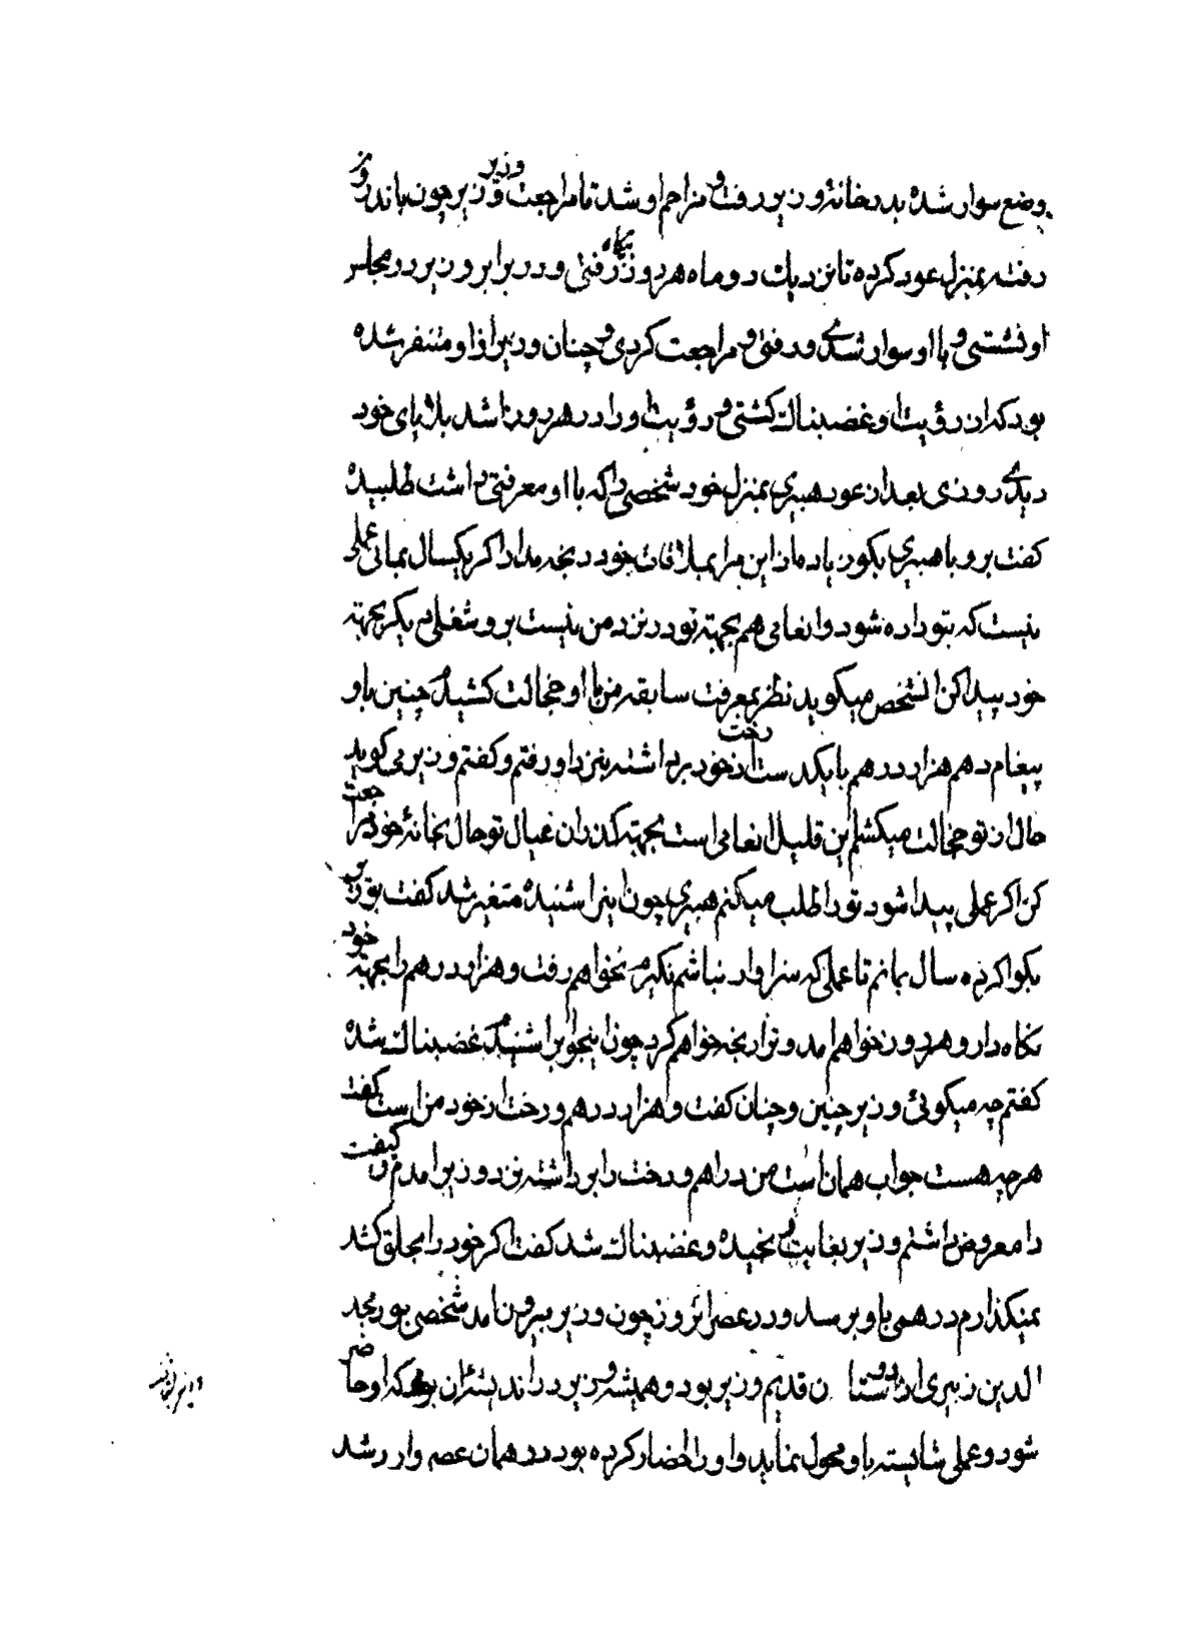 بوضع سوار شده بدر خانهٔ وزیر رفت و مزاحم او شد تا مراجعت وزیر و وزیر چون باندروز
رفته بمنزل عود کرده تا نزدیک دو ماه هر روز پکاه رفتی و در برابر وزیر در مجلس
او نشستی و با او سوار شدی و رفتی و مراجعت کردی و چنان وزیر از او متنفر شده
بود که از رؤیت او غضبناک کشتی و رؤیت او را در هر روز اشد بلاهای خود
دیدی روزی بعد از عود هبیری بمنزل خود شخصی را که با او معرفتی داشت طلبیده
کفت برو با هبیری بکو زیاده از این مرا بملاقات خود رنجه مدار اکر یکسال بمانی عملی
نیست که بتو داده شود و انعامی هم بجهته تو در نزد من نیست برو شغلی دیکر بجهته
خود پیدا کن انشخص میکوید نظر بمعرفت سابقه من با او خجالت کشیدم که چنین باو
پیغام دهم هزار درهم با یکدست رخت از خود برداشته بنزد او رفتم و کفتم وزیر می کوید
حال از تو خجالت میکشم این قلیل انعامی است بجهته کذران عیال تو حال بخانهٔ خود مراجعت
کن اکر عملی پیدا شود تو را طلب میکنم هبیری چون اینرا شنید متغیر شد کفت بوزیر
بکو اکر ده سال بمانم تا عملی که سزاوار نباشم نکیرم نخواهم رفت و هزار درهم را بجهته خود
نکاه دار و هر روز خواهم امد و تو را رنجه خواهم کرد چون اینجواب را شنیدم غضبناک شده
کفتم چه میکوئی وزیر چنین و چنان کفت و هزار درهم و رخت از خود من است کفت
هر چه هست جواب همان است من دراهم و رخت را برداشته نزد وزیر امدم و کیفیت
را معروض داشتم وزیر بغایت رنجیده و غضبناک شد کفت اکر خود را بحلق کشد
نمیکذارم درهمی باو برسد و در عصر انروز چون وزیر بیرون امد شخصی بود مجد
الدین زبیری از دوستان قدیم وزیر بود و همیشه وزیر در اندیشه ان بود که او حاضر
شود و عملی شایسته باو محول نماید و او را احضار کرده بود در همان عصر وارد شد